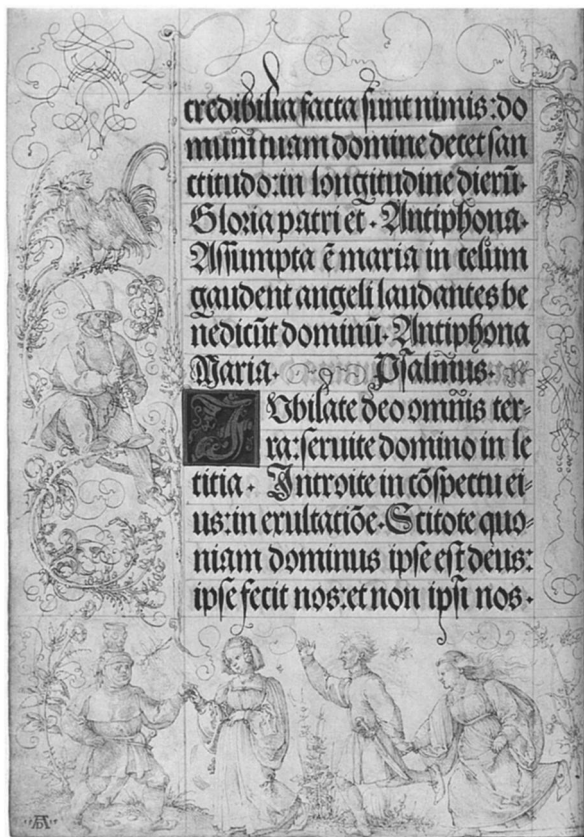 credibilia facta sunt nimis: do
mum tuam domine decet san
ctitudo: in longitudine dierū.
Gloria patri et. Antiphona.
Assumpta ē maria in celum
gaudent angeli laudantes be
nedicūt dominū. Antiphona
Maria. Psalmus.
IVbilate deo omnis ter-
ra: seruite domino in le
titia. Introite in cōspectu ei-
us: in exultatiōe. Scitote quo-
niam dominus ipse est deus:
ipse fecit nos: et non ipsi nos.
AD